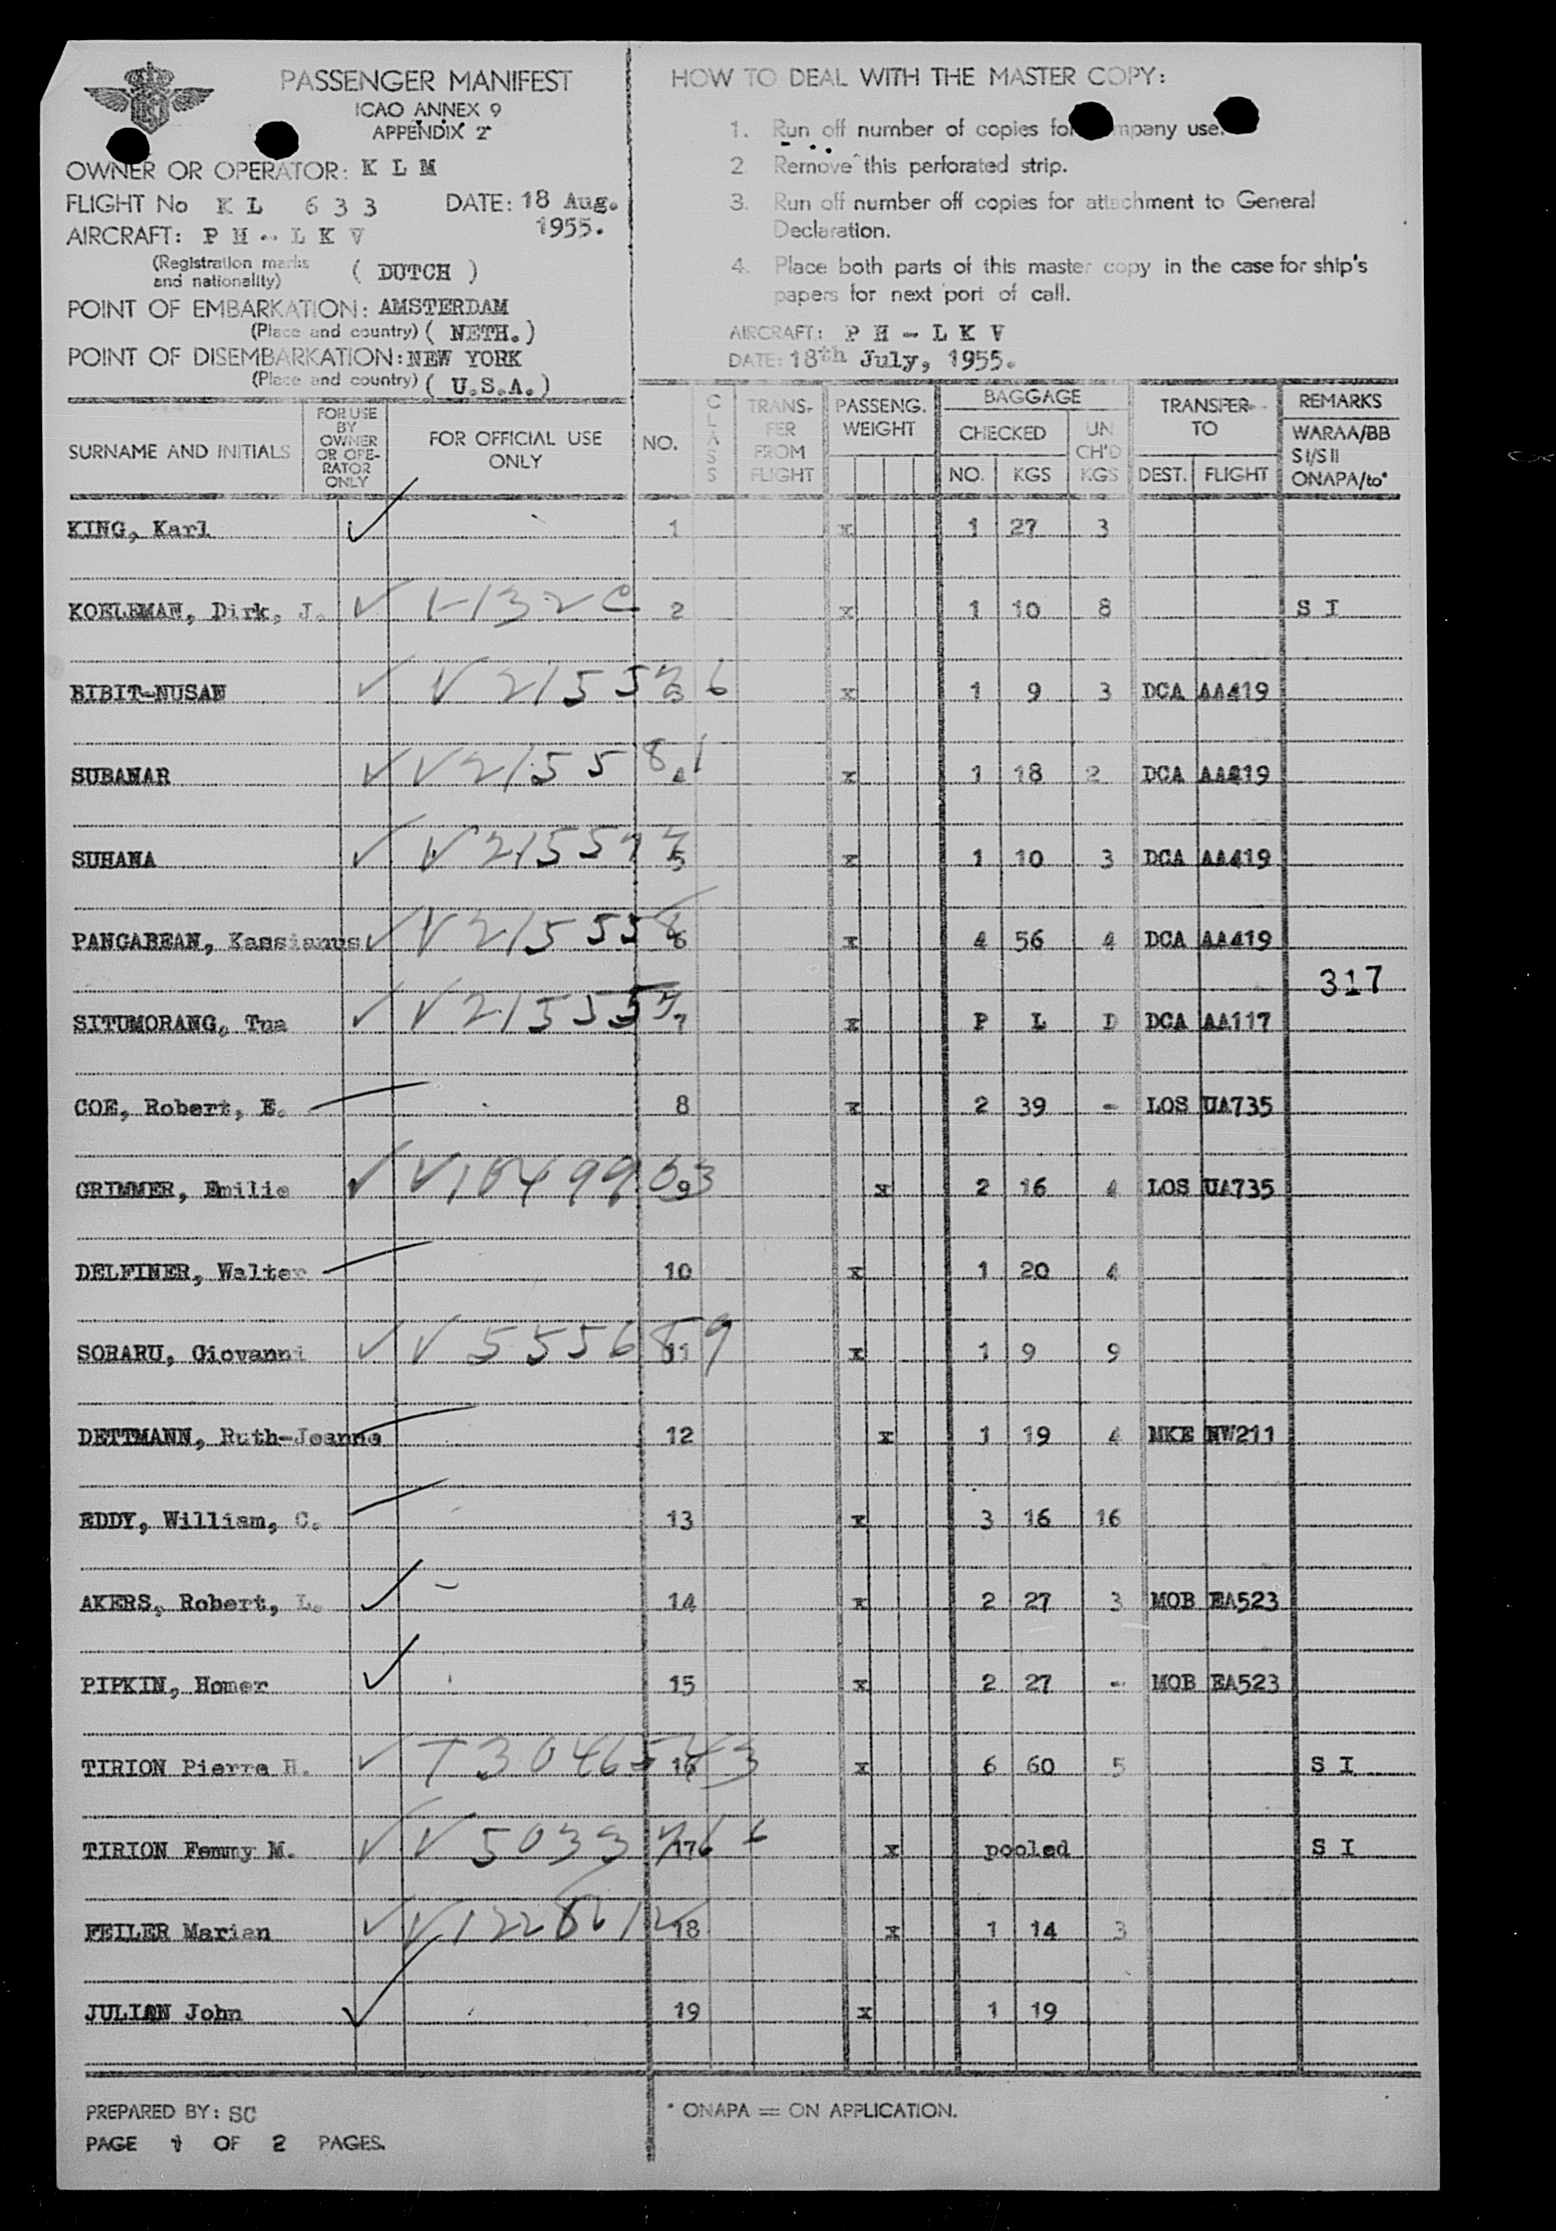 PASSENGER MANIFEST
ICAO ANNEX 9
APPENDIX 2
OWNER OR OPERATOR: K L M
FLIGHT No K L 6 3 3 DATE: 18 Aug. 1955.
AIRCRAFT: P H - L K V
(Registration marks and nationality) ( DUTCH )
POINT OF EMBARKATION: AMSTERDAM
(Place and country) ( NETH. )
POINT OF DISEMBARKATION: NEW YORK
(Place and country) ( U.S.A. )
HOW TO DEAL WITH THE MASTER COPY:
1. Run off number of copies for company use.
2. Remove this perforated strip.
3. Run off number off copies for attachment to General
Declaration.
4. Place both parts of this master copy in the case for ship's
papers for next port of call.
AIRCRAFT: P H - L K V
DATE: 18th July, 1955.
SURNAME AND INITIALS FOR USE BY OWNER OR OPE-RATOR ONLY FOR OFFICIAL USE ONLY NO. CLASS TRANS-FER FROM FLIGHT PASSENG. WEIGHT BAGGAGE CHECKED NO. KGS UN CH'D KGS TRANSFER TO DEST. FLIGHT REMARKS WARAA/BB SI/SII ONAPA/to*
KING, Karl 1 x 1 27 3
KOELEMAN, Dirk, J. V-132 C 2 x 1 10 8 S I
BIBIT-NUSAN V 2155 6 3 x 1 9 3 DCA AA419
SUBANAR V 215581 4 x 1 18 2 DCA AA419
SUHANA V 21559 5 x 1 10 3 DCA AA419
PANGABEAN, Kassianus V 215558 6 x 4 56 4 DCA AA419
317
SITUMORANG, Tua V 215555 7 x P L D DCA AA117
COE, Robert, E. 8 x 2 39 - LOS UA735
GRIMMER, Emilie V 1049953 9 x 2 16 4 LOS UA735
DELFINER, Walter 10 x 1 20 4
SOHARU, Giovanni V 555689 11 x 1 9 9
DETTMANN, Ruth-Jeanne 12 x 1 19 4 MKE NW211
EDDY, William, C. 13 x 3 16 16
AKERS, Robert, L. 14 x 2 27 3 MOB EA523
PIPKIN, Homer 15 x 2 27 - MOB EA523
TIRION Pierre H. 16 x 6 60 5 S I
TIRION Femmy M. 17 x pooled S I
FEILER Marian 18 x 1 14 3
JULIAN John 19 x 1 19
PREPARED BY: SC
PAGE 1 OF 2 PAGES.
* ONAPA = ON APPLICATION.